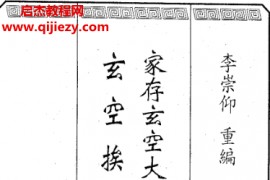 启杰教程网
www.qijiezy.com
李崇仰 重編
家存玄空大
玄空挨